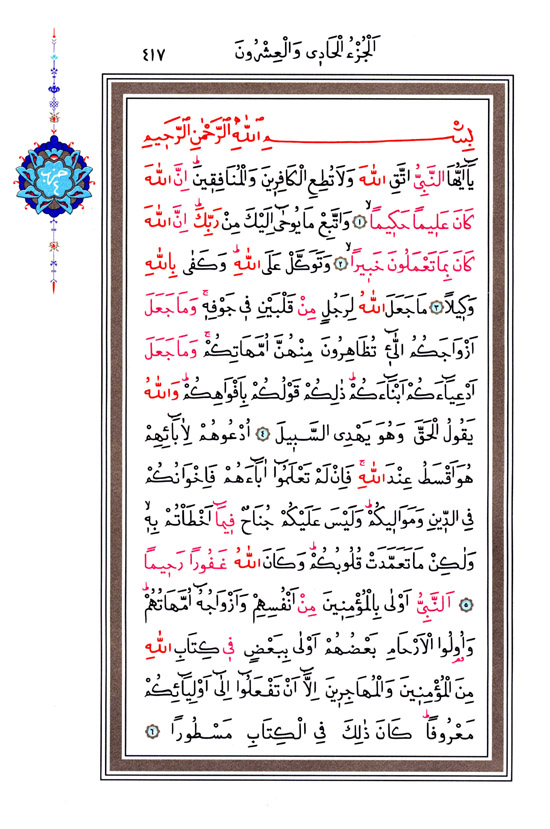 اَلْجُزْءُ الْحَادِى وَالْعِشْرُونَ
٤١٧
حزب ٤
بِسْمِ اللّٰهِ الرَّحْمٰنِ الرَّحٖيمِ
يَٓا اَيُّهَا النَّبِىُّ اتَّقِ اللّٰهَ وَلَا تُطِعِ الْكَافِرٖينَ وَالْمُنَافِقٖينَؕ اِنَّ اللّٰهَ
كَانَ عَلٖيماً حَكٖيماًۙ ﴿١﴾ وَاتَّبِعْ مَا يُوحٰٓى اِلَيْكَ مِنْ رَبِّكَؕ اِنَّ اللّٰهَ
كَانَ بِمَا تَعْمَلُونَ خَبٖيراًۙ ﴿٢﴾ وَتَوَكَّلْ عَلَى اللّٰهِؕ وَكَفٰى بِاللّٰهِ
وَكٖيلاً ﴿٣﴾ مَا جَعَلَ اللّٰهُ لِرَجُلٍ مِنْ قَلْبَيْنِ فٖى جَوْفِهٖۚ وَمَا جَعَلَ
اَزْوَاجَكُمُ الّٰٓئٖ تُظَاهِرُونَ مِنْهُنَّ اُمَّهَاتِكُمْۚ وَمَا جَعَلَ
اَدْعِيَٓاءَكُمْ اَبْنَٓاءَكُمْؕ ذٰلِكُمْ قَوْلُكُمْ بِاَفْوَاهِكُمْؕ وَاللّٰهُ
يَقُولُ الْحَقَّ وَهُوَ يَهْدِى السَّبٖيلَ ﴿٤﴾ اُدْعُوهُمْ لِاٰبَٓائِهِمْ
هُوَ اَقْسَطُ عِنْدَ اللّٰهِۚ فَاِنْ لَمْ تَعْلَمُٓوا اٰبَٓاءَهُمْ فَاِخْوَانُكُمْ
فِى الدّٖينِ وَمَوَالٖيكُمْؕ وَلَيْسَ عَلَيْكُمْ جُنَاحٌ فٖيمَٓا اَخْطَأْتُمْ بِهٖۙ
وَلٰكِنْ مَا تَعَمَّدَتْ قُلُوبُكُمْؕ وَكَانَ اللّٰهُ غَفُوراً رَحٖيماً
﴿٥﴾ اَلنَّبِىُّ اَوْلٰى بِالْمُؤْمِنٖينَ مِنْ اَنْفُسِهِمْ وَاَزْوَاجُهُٓ اُمَّهَاتُهُمْؕ
وَاُولُوا الْاَرْحَامِ بَعْضُهُمْ اَوْلٰى بِبَعْضٍ فٖى كِتَابِ اللّٰهِ
مِنَ الْمُؤْمِنٖينَ وَالْمُهَاجِرٖينَ اِلَّٓا اَنْ تَفْعَلُٓوا اِلٰٓى اَوْلِيَٓائِكُمْ
مَعْرُوفاًؕ كَانَ ذٰلِكَ فِى الْكِتَابِ مَسْطُوراً ﴿٦﴾